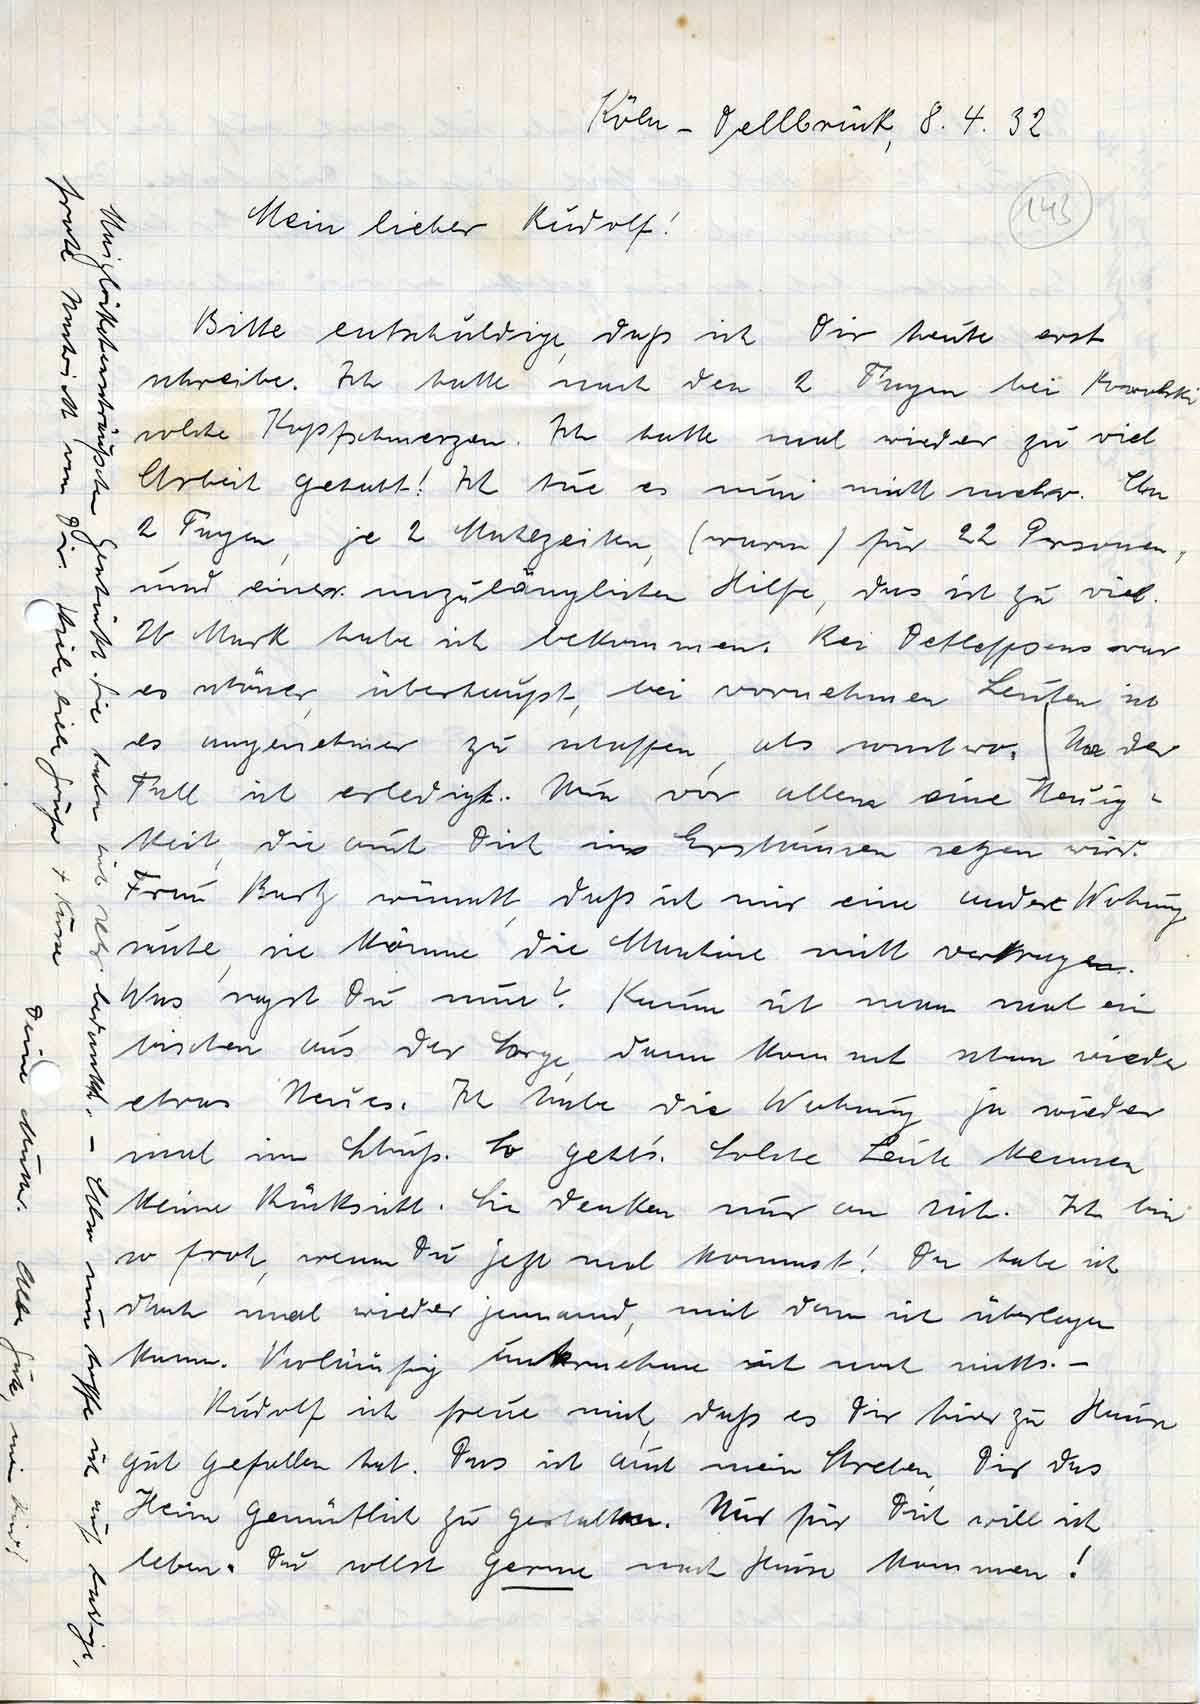 Köln - Dellbrück, 8. 4. 32
143
Mein lieber Rudolf!
Bitte entschuldige, daß ich Dir heute erst
schreibe. Ich hatte nach den 2 Tagen bei
solche Kopfschmerzen. Ich hatte mal wieder zu viel
Arbeit gehabt! Ich tue es nun nicht mehr. An
2 Tagen, je 2 Mahlzeiten, (warm) für 22 Personen,
und einer unzulänglichen Hilfe, das ist zu viel.
Mark habe ich bekommen. Bei Detleffsens war
es schöner, überhaupt, bei vornehmen Leuten ist
es angenehmer zu schaffen, als sonstwo. Na der
Fall ist erledigt. Nun vor allem eine Neuig-
keit, die auch Dich ins Erstaunen setzen wird.
Frau Bartz wünscht, daß ich mir eine andere Wohnung
suche, sie könne die nicht vertragen.
Was sagst Du nun? Kaum ist man mal ein
bischen aus der Sorge, dann kommt schon wieder
etwas Neues. Ich habe die Wohnung ja wieder
mal im Schuß. So geht's. Solche Leute kennen
keine Rücksicht. Sie denken nur an sich. Ich bin
so froh, wenn Du jetzt mal kommst! Da habe ich
doch mal wieder jemand, mit dem ich überlegen
kann. Vorläufig unternehme ich noch nichts. -
Rudolf ich freue mich, daß es Dir hier zu Hause
gut gefallen hat. Das ist auch mein Streben, Dir das
Heim gemütlich zu gestalten. Nur für Dich will ich
leben. Du sollst gerne nach Hause kommen!
Maiglöckchensträußchen geschickt. Sie haben sich sehr bedankt. - Also nun hoffe ich auf baldige,
frohe Nachricht von Dir. Viele liebe Grüße + Küsse Deine Mutter. Alles Gute, mein Kind!